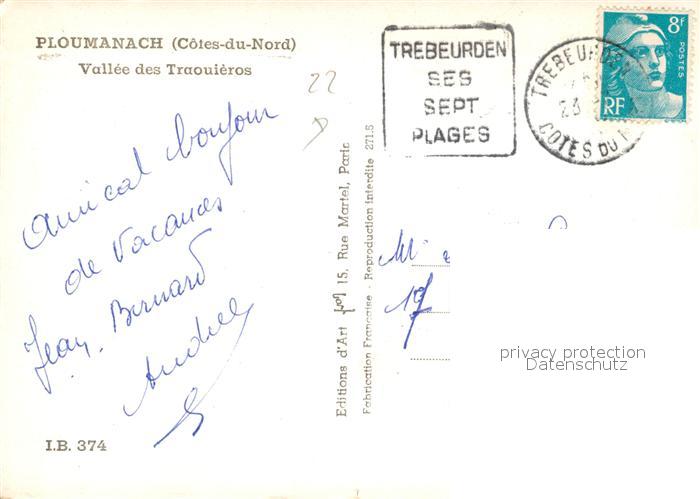 PLOUMANACH (Côtes-du-Nord)
Vallée des Traouièros
22
Amical bonjour
de Vacances
Jean. Bernard
Andrée
I.B. 374
Editions d'Art Jos 15, Rue Martel, Paris
Fabrication Française - Reproduction interdite 271.S
TREBEURDEN
SES
SEPT
PLAGES
TREBEURDEN
23
COTES DU N
8F
POSTES
RF
17
privacy protection
Datenschutz